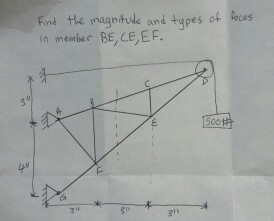 Find the magnitude and types of foces
in member BE, CE, EF.
D
C
3"
A
B
E
500#
4"
F
G
3"
3"
3"